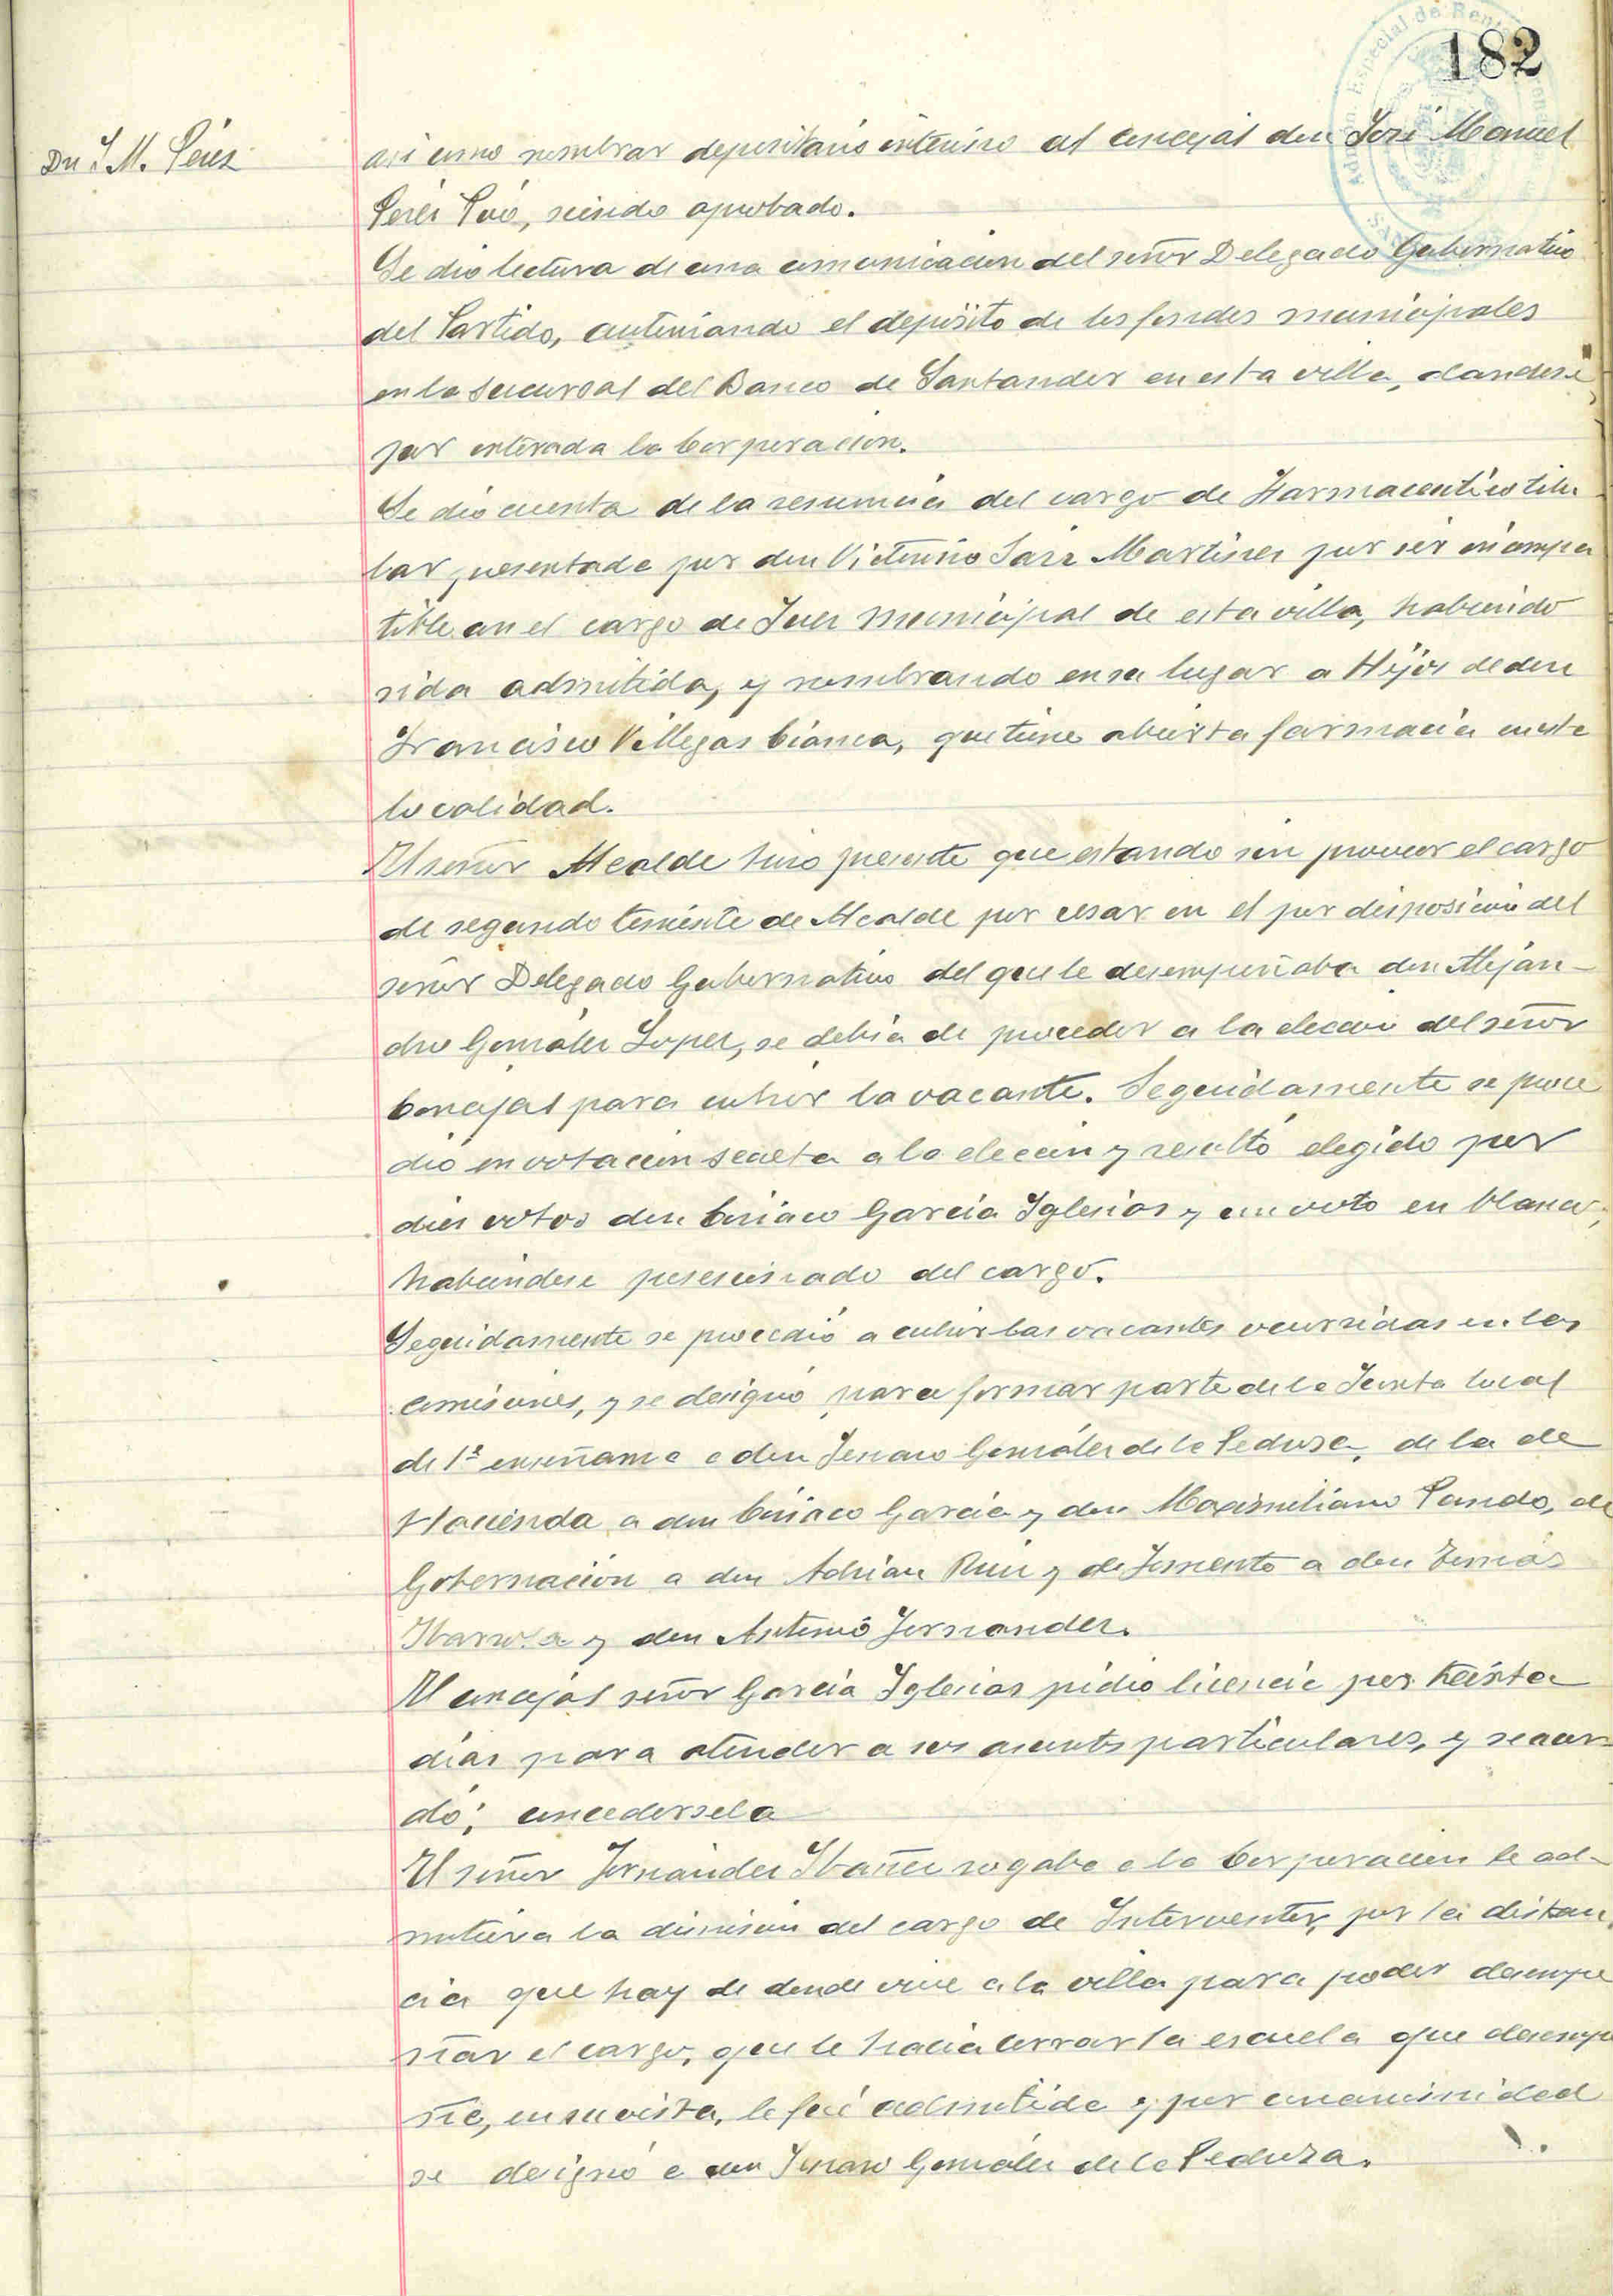 182
Dn J. M. Pérez
asi como nombrar depositario interino al concejal don José Manuel
Pérez, siendo aprobado.
Se dio lectura de una comunicacion del señor Delegado Gubernativo
del Partido, autorizando el depósito de los fondos municipales
en la Sucursal del Banco de Santander en esta villa, dandose
por enterada la Corporacion.
Se dio cuenta de la renuncia del cargo de Farmaceutico titu
lar, presentada por don Victorino Sainz Martinez por ser incompa
tible con el cargo de Juez municipal de esta villa, habiendo
sida admitida, y nombrando en su lugar a Hijos de don
Francisco Villegas, que tiene abierta farmacia en esta
localidad.
El señor Alcalde hizo presente que estando sin proveer el cargo
de segundo teniente de Alcalde por cesar en el por disposicion del
señor Delegado Gubernativo del que le desempeñaba don Alejan-
dro González Lopez, se debia de proceder a la eleccion del señor
Concejal para cubrir la vacante. Seguidamente se proce
dio en votacion secreta a la eleccion y resultó elegido por
diez votos don Ciriaco Garcia Iglesias y un voto en blanco,
habiendose posesionado del cargo.
Seguidamente se procedió a cubrir las vacantes ocurridas en las
comisiones, y se designó para formar parte de la Junta local
de 1ª enseñanza a don Jenaro González de la Pedraja, de la de
Hacienda a don Ciriaco Garcia y don Maximiliano Pando, de
Gobernación a don Adrian Ruiz y de Fomento a don Tomás
Ibarrola y don Antonio Fernandez.
El concejal señor Garcia Iglesias pidio licencia por treinta
dias para atender a sus asuntos particulares, y se acor-
dó; concedersela
El señor Fernández Ibañez rogaba a la Corporacion le ad-
mitiera la dimision del cargo de Interventor, por la distan
cia que hay de donde vive a la villa para poder desempe
ñar el cargo, que le hacia cerrar la escuela que desempe
ña, en su vista, le fué admitida y por unanimidad
se designó a don Jenaro González de la Pedraja.